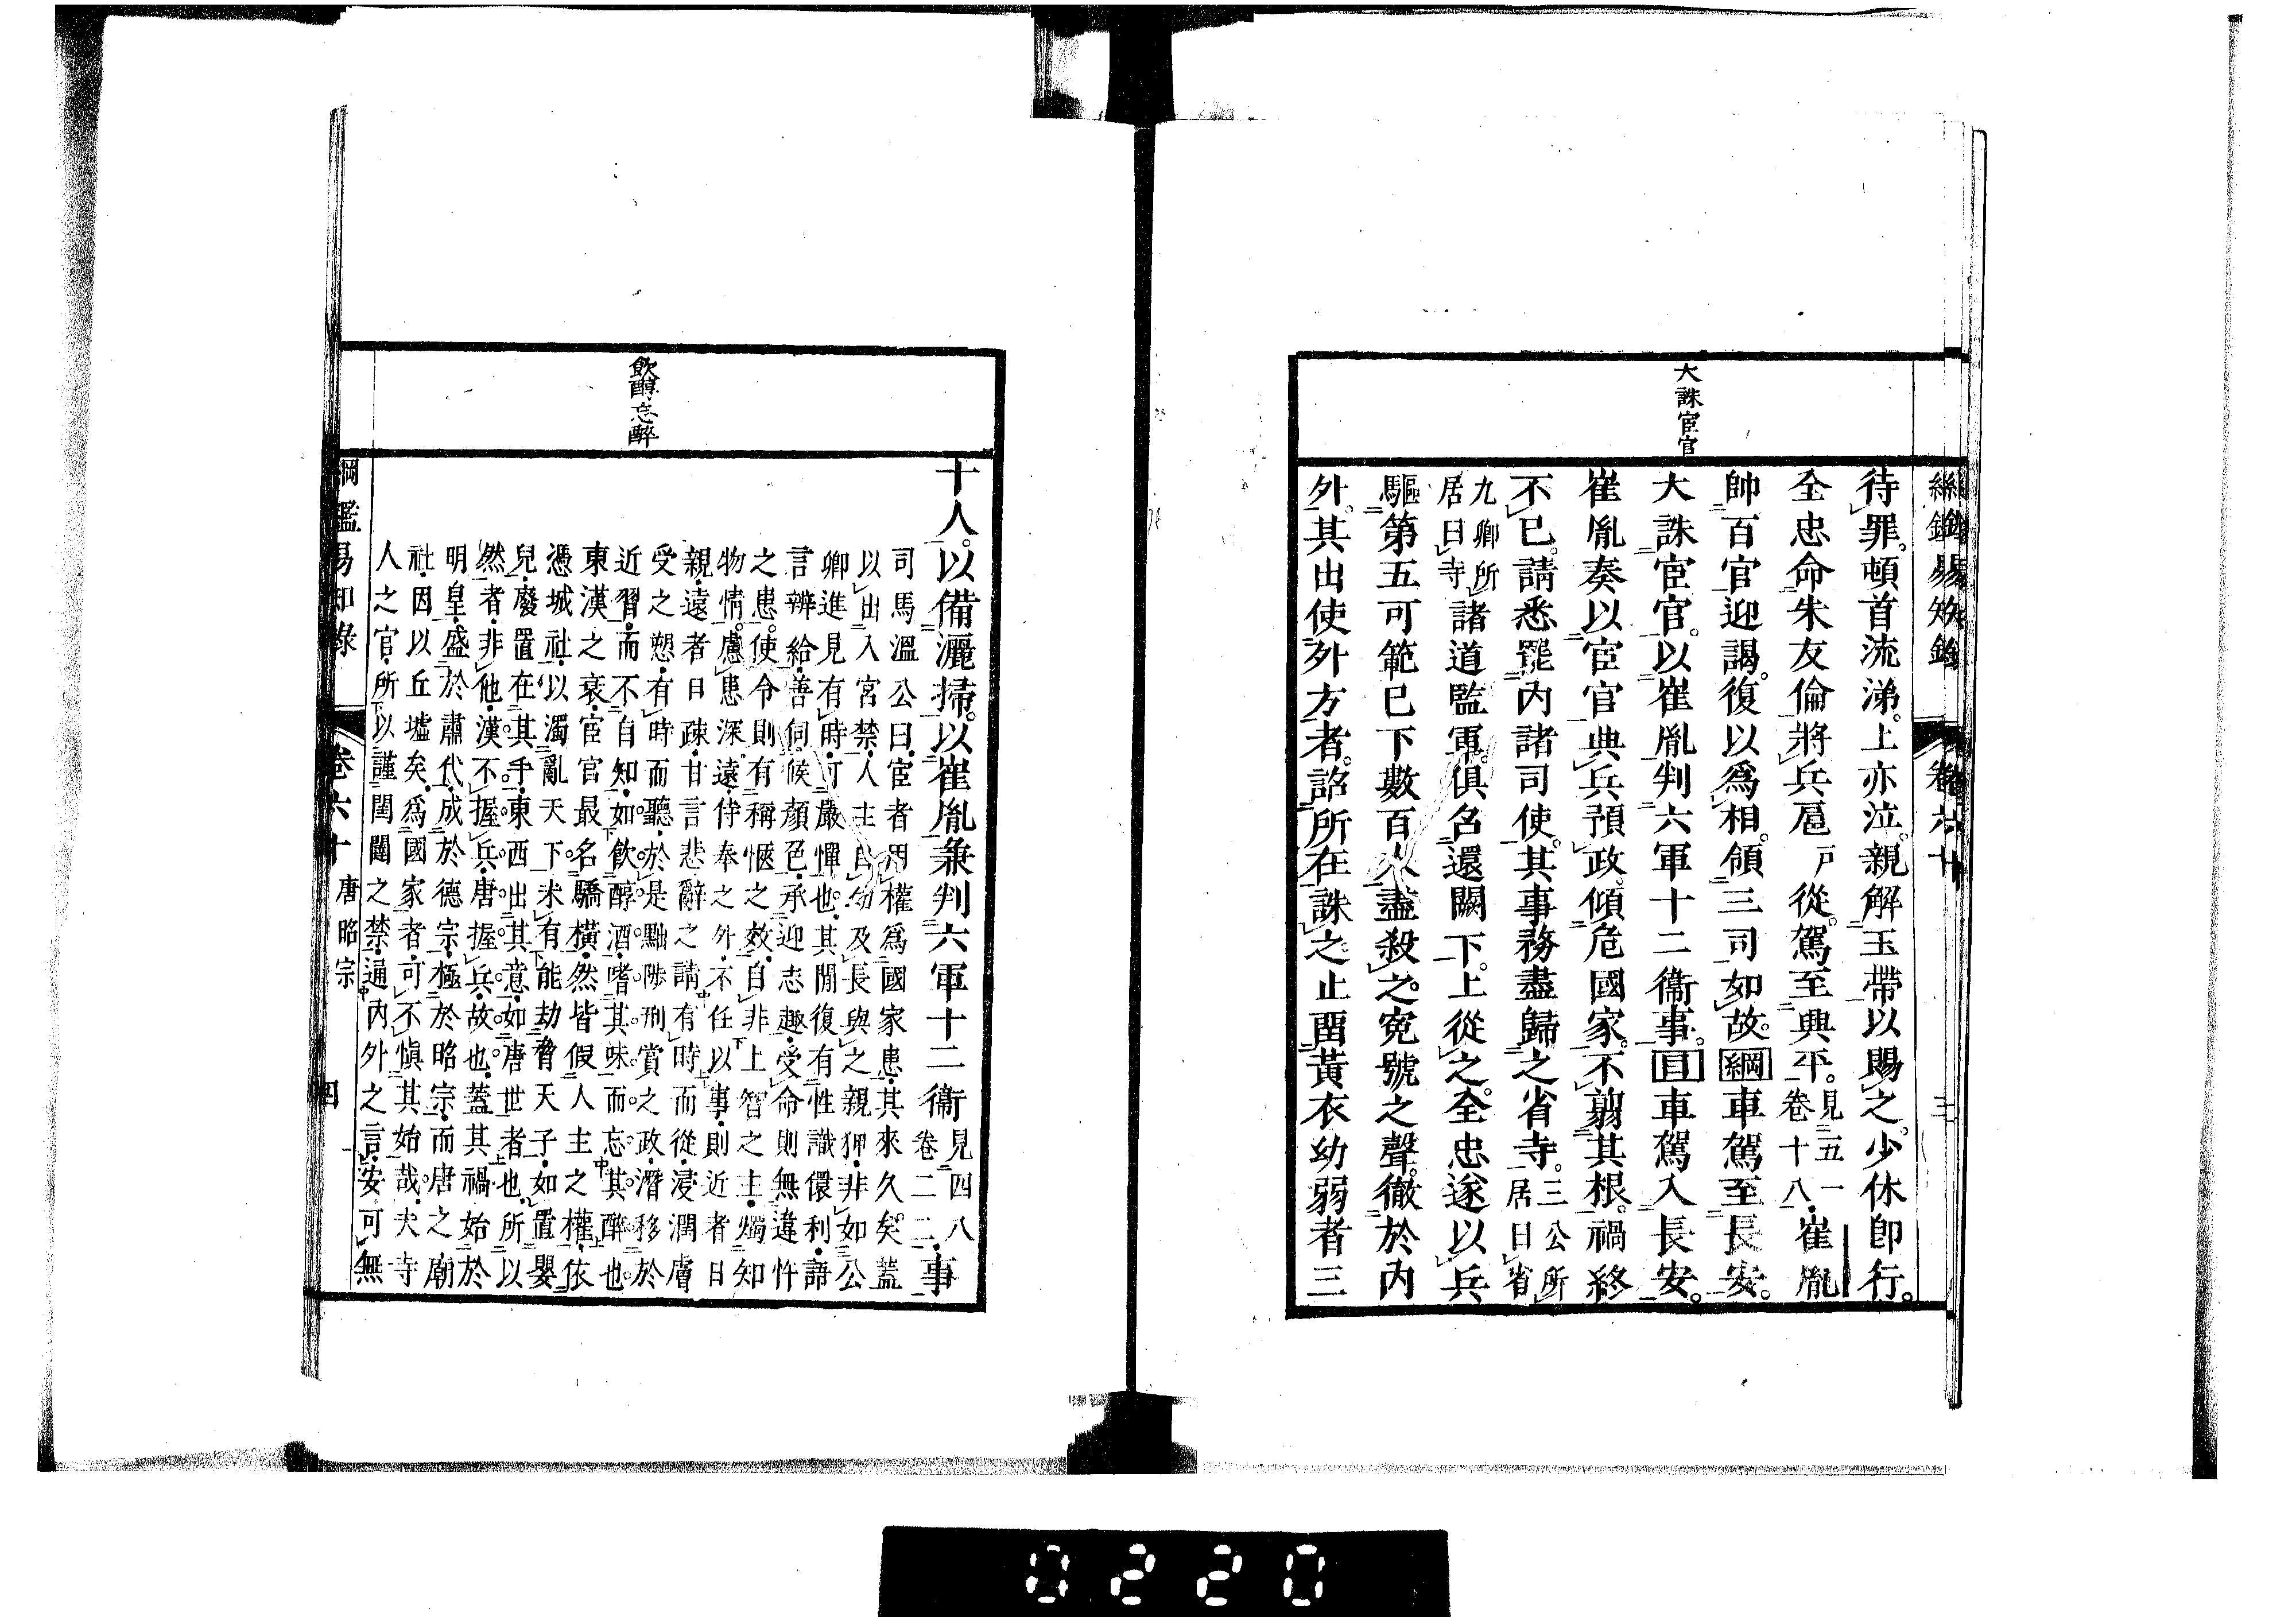 大誅宦官
待罪。頓首流涕。上亦泣。親解玉帶以賜之。少休卽行。
全忠命朱友倫將兵扈戶從。駕至典平。見五一卷十八崔胤
帥百官迎謁。復以爲相。領三司如故。綱車駕至長安。
大誅宦官。以崔胤判六軍十二衞事。目車駕入長安。
崔胤奏以宦官典兵預政。傾危國家。不翦其根。禍終
不已。請悉罷內諸司使。其事務盡歸之省寺。三公所居曰省
九卿所居曰寺諸道監軍。俱召還闕下。上從之。全忠遂以兵
驅第五可範已下數百人盡殺之。冤號之聲。徹於內
外。其出使外方者。詔所在誅之。止畱黃衣幼弱者三
卷六十
三
飮醇忘醉
十人。以備灑掃。以崔胤兼判六軍十二衞見四八卷二二事
司馬溫公曰、宦者用權爲國家患、其來久矣。蓋
以出入宮禁、人主自幼及長與之親狎、非如公
卿進見有時、可嚴憚也。其閒復有性識儇利、語
言辨給、善伺候顏色、承迎志趣、受命則無違忤
之患。使令則有稱愜之效、自非上智之主、燭知
物情。慮患深遠、侍奉之外、不任以事、則近者日
親、遠者日疎、甘言悲辭之請、有時而從、浸潤膚
受之愬、有時而聽、於是黜陟刑賞之政、潛移於
近習、而不自知、如飮醇酒、嗜其味而忘其醉也。
東漢之衰、宦官最名驕橫、然皆假人主之權、依
憑城社、以濁亂天下。未有能劫脅天子、如置嬰
兒、廢置在其手、東西出其意、如唐世者也、所以
然者、非他、漢不握兵、唐握兵故也。蓋其禍始於
明皇、盛於肅代、成於德宗、極於昭宗、而唐之廟
社、因以丘墟矣、爲國家者、可不愼其始哉。夫寺
人之官、所以謹閨闥之禁、通內外之言、安可無
綱鑑易知錄　卷六十　唐昭宗　四
0220